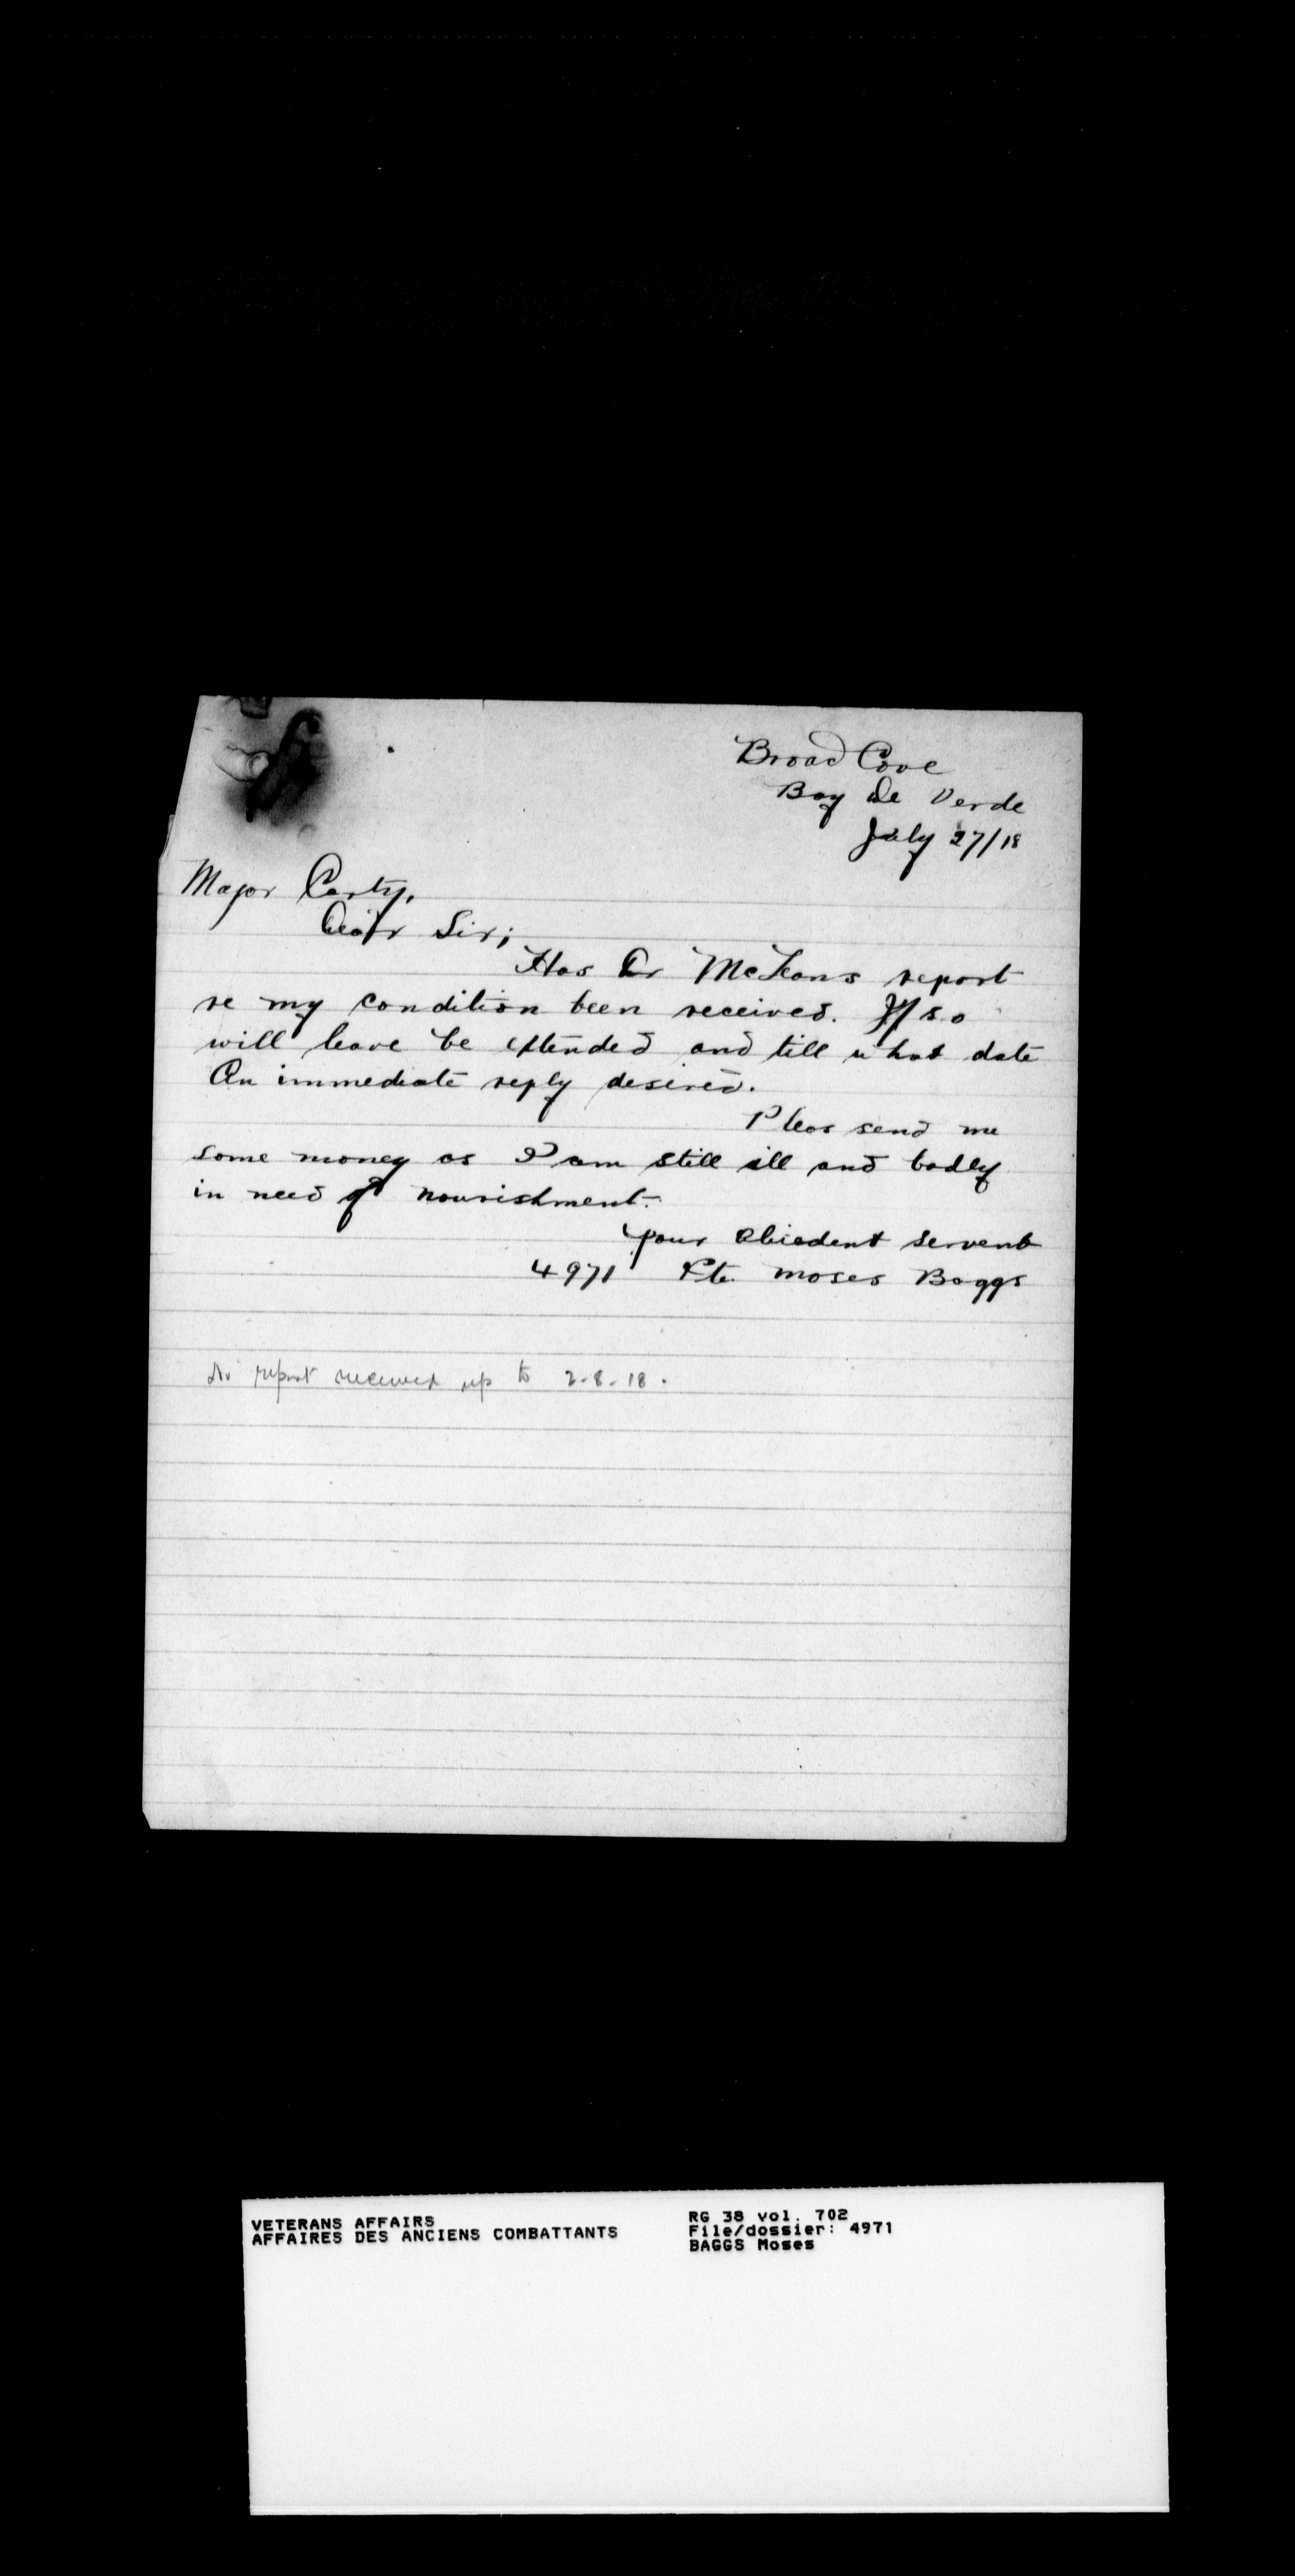 Broad Cove
Bay de Verde
July 27/18
Major Carty,
Dear Sir;
Has Dr McLeans report
re my condition been received. If so
will leave be extended and till what date
An immediate reply desired.
Pleas send me
some money as I am still ill and badly
in need of nourishment.
Your Obiedent Servent
4971 Pte. Moses Baggs
No report received up to 2-8-18.
VETERANS AFFAIRS
AFFAIRES DES ANCIENS COMBATTANTS
RG 38 vol. 702
File/dossier: 4971
BAGGS Moses